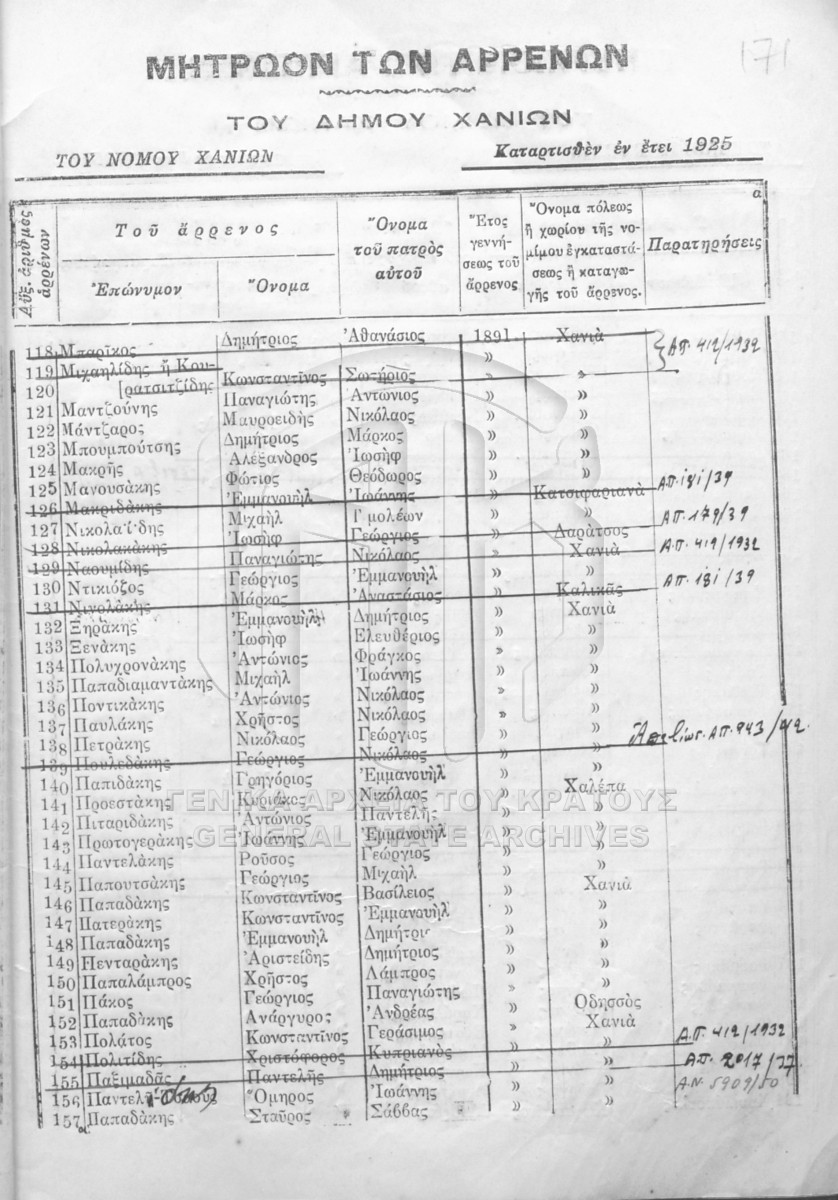 171
ΜΗΤΡΩΟΝ ΤΩΝ ΑΡΡΕΝΩΝ
ΤΟΥ ΔΗΜΟΥ ΧΑΝΙΩΝ
ΤΟΥ ΝΟΜΟΥ ΧΑΝΙΩΝ Καταρτισθὲν ἐν ἔτει 1925
α
Αὔξ. ἀριθμὸς ἀρρένων
Τοῦ ἄρρενος
Ἐπώνυμον Ὄνομα
Ὄνομα
τοῦ πατρὸς
αὐτοῦ
Ἔτος
γεννή-
σεως τοῦ
ἄρρενος
Ὄνομα πόλεως
ἢ χωρίου τῆς νο-
μίμου ἐγκαταστά-
σεως ἢ καταγω-
γῆς τοῦ ἄρρενος.
Παρατηρήσεις
118 Μπαρῖκος Δημήτριος Ἀθανάσιος 1891 Χανιὰ Α.Π. 412/1932
119 Μιχαηλίδης ἢ Κου- »
120 [ρατσιτζίδης Κωνσταντῖνος Σωτήριος » »
121 Μαντζούνης Παναγιώτης Ἀντώνιος » »
122 Μάντζαρος Μαυροειδὴς Νικόλαος » »
123 Μπουμπούτσης Δημήτριος Μάρκος » »
124 Μακρῆς Ἀλέξανδρος Ἰωσὴφ » »
125 Μανουσάκης Φώτιος Θεόδωρος » »
126 Μακριδάκης Ἐμμανουὴλ Ἰωάννης » Κατσιφαριανὰ Α.Π. 181/39
127 Νικολαΐδης Μιχαὴλ Τιμολέων » »
128 Νικολακάκης Ἰωσὴφ Γεώργιος » Δαράτσος Α.Π. 179/39
129 Ναουμίδης Παναγιώτης Νικόλαος » Χανιὰ Α.Π. 419/1932
130 Ντικιόζος Γεώργιος Ἐμμανουὴλ » »
131 Νινολάκης Μάρκος Ἀναστάσιος » Καλικᾶς Α.Π. 181/39
132 Ξηράκης Ἐμμανουὴλ Δημήτριος » Χανιὰ
133 Ξενάκης Ἰωσὴφ Ἐλευθέριος » »
134 Πολυχρονάκης Ἀντώνιος Φράγκος » »
135 Παπαδιαμαντάκης Μιχαὴλ Ἰωάννης » »
136 Ποντικάκης Ἀντώνιος Νικόλαος » »
137 Παυλάκης Χρῆστος Νικόλαος » »
138 Πετράκης Νικόλαος Γεώργιος » »
139 Πουλεδάκης Γεώργιος Νικόλαος » » Ἀπεβίωσ. Α.Π. 943/42
140 Παπιδάκης Γρηγόριος Ἐμμανουὴλ » Χαλέπα
141 Προεστάκης Κυριάκος Νικόλαος » »
142 Πιταριδάκης Ἀντώνιος Παντελῆς » »
143 Πρωτογεράκης Ἰωάννης Ἐμμανουὴλ » »
144 Παντελάκης Ροῦσος Γεώργιος » »
145 Παπουτσάκης Γεώργιος Μιχαὴλ » Χανιὰ
146 Παπαδάκης Κωνσταντῖνος Βασίλειος » »
147 Πατεράκης Κωνσταντῖνος Ἐμμανουὴλ » »
148 Παπαδάκης Ἐμμανουὴλ Δημήτριο » »
149 Πενταράκης Ἀριστείδης Δημήτριος » »
150 Παπαλάμπρος Χρῆστος Λάμπρος » »
151 Πάκος Γεώργιος Παναγιώτης » »
152 Παπαδάκης Ἀνάργυρο Ἀνδρέας » Ὀδησσὸς
153 Πολάτος Κωνσταντῖνος Γεράσιμος » Χανιὰ
154 Πολιτίδης Χριστόφορος Κυπριανὸς » » Α.Π. 412/1932
155 Παξιμαδᾶς Παντελῆς Δημήτριος » » Α.Π. 2017/37
156 Παντελ Ὅμηρος Ἰωάννης » » Α.Ν. 5909/50
157 Παπαδάκης Σταῦρος Σάββας » »
ΓΕΝΙΚΑ ΑΡΧΕΙΑ ΤΟΥ ΚΡΑΤΟΥΣ
GENERAL STATE ARCHIVES